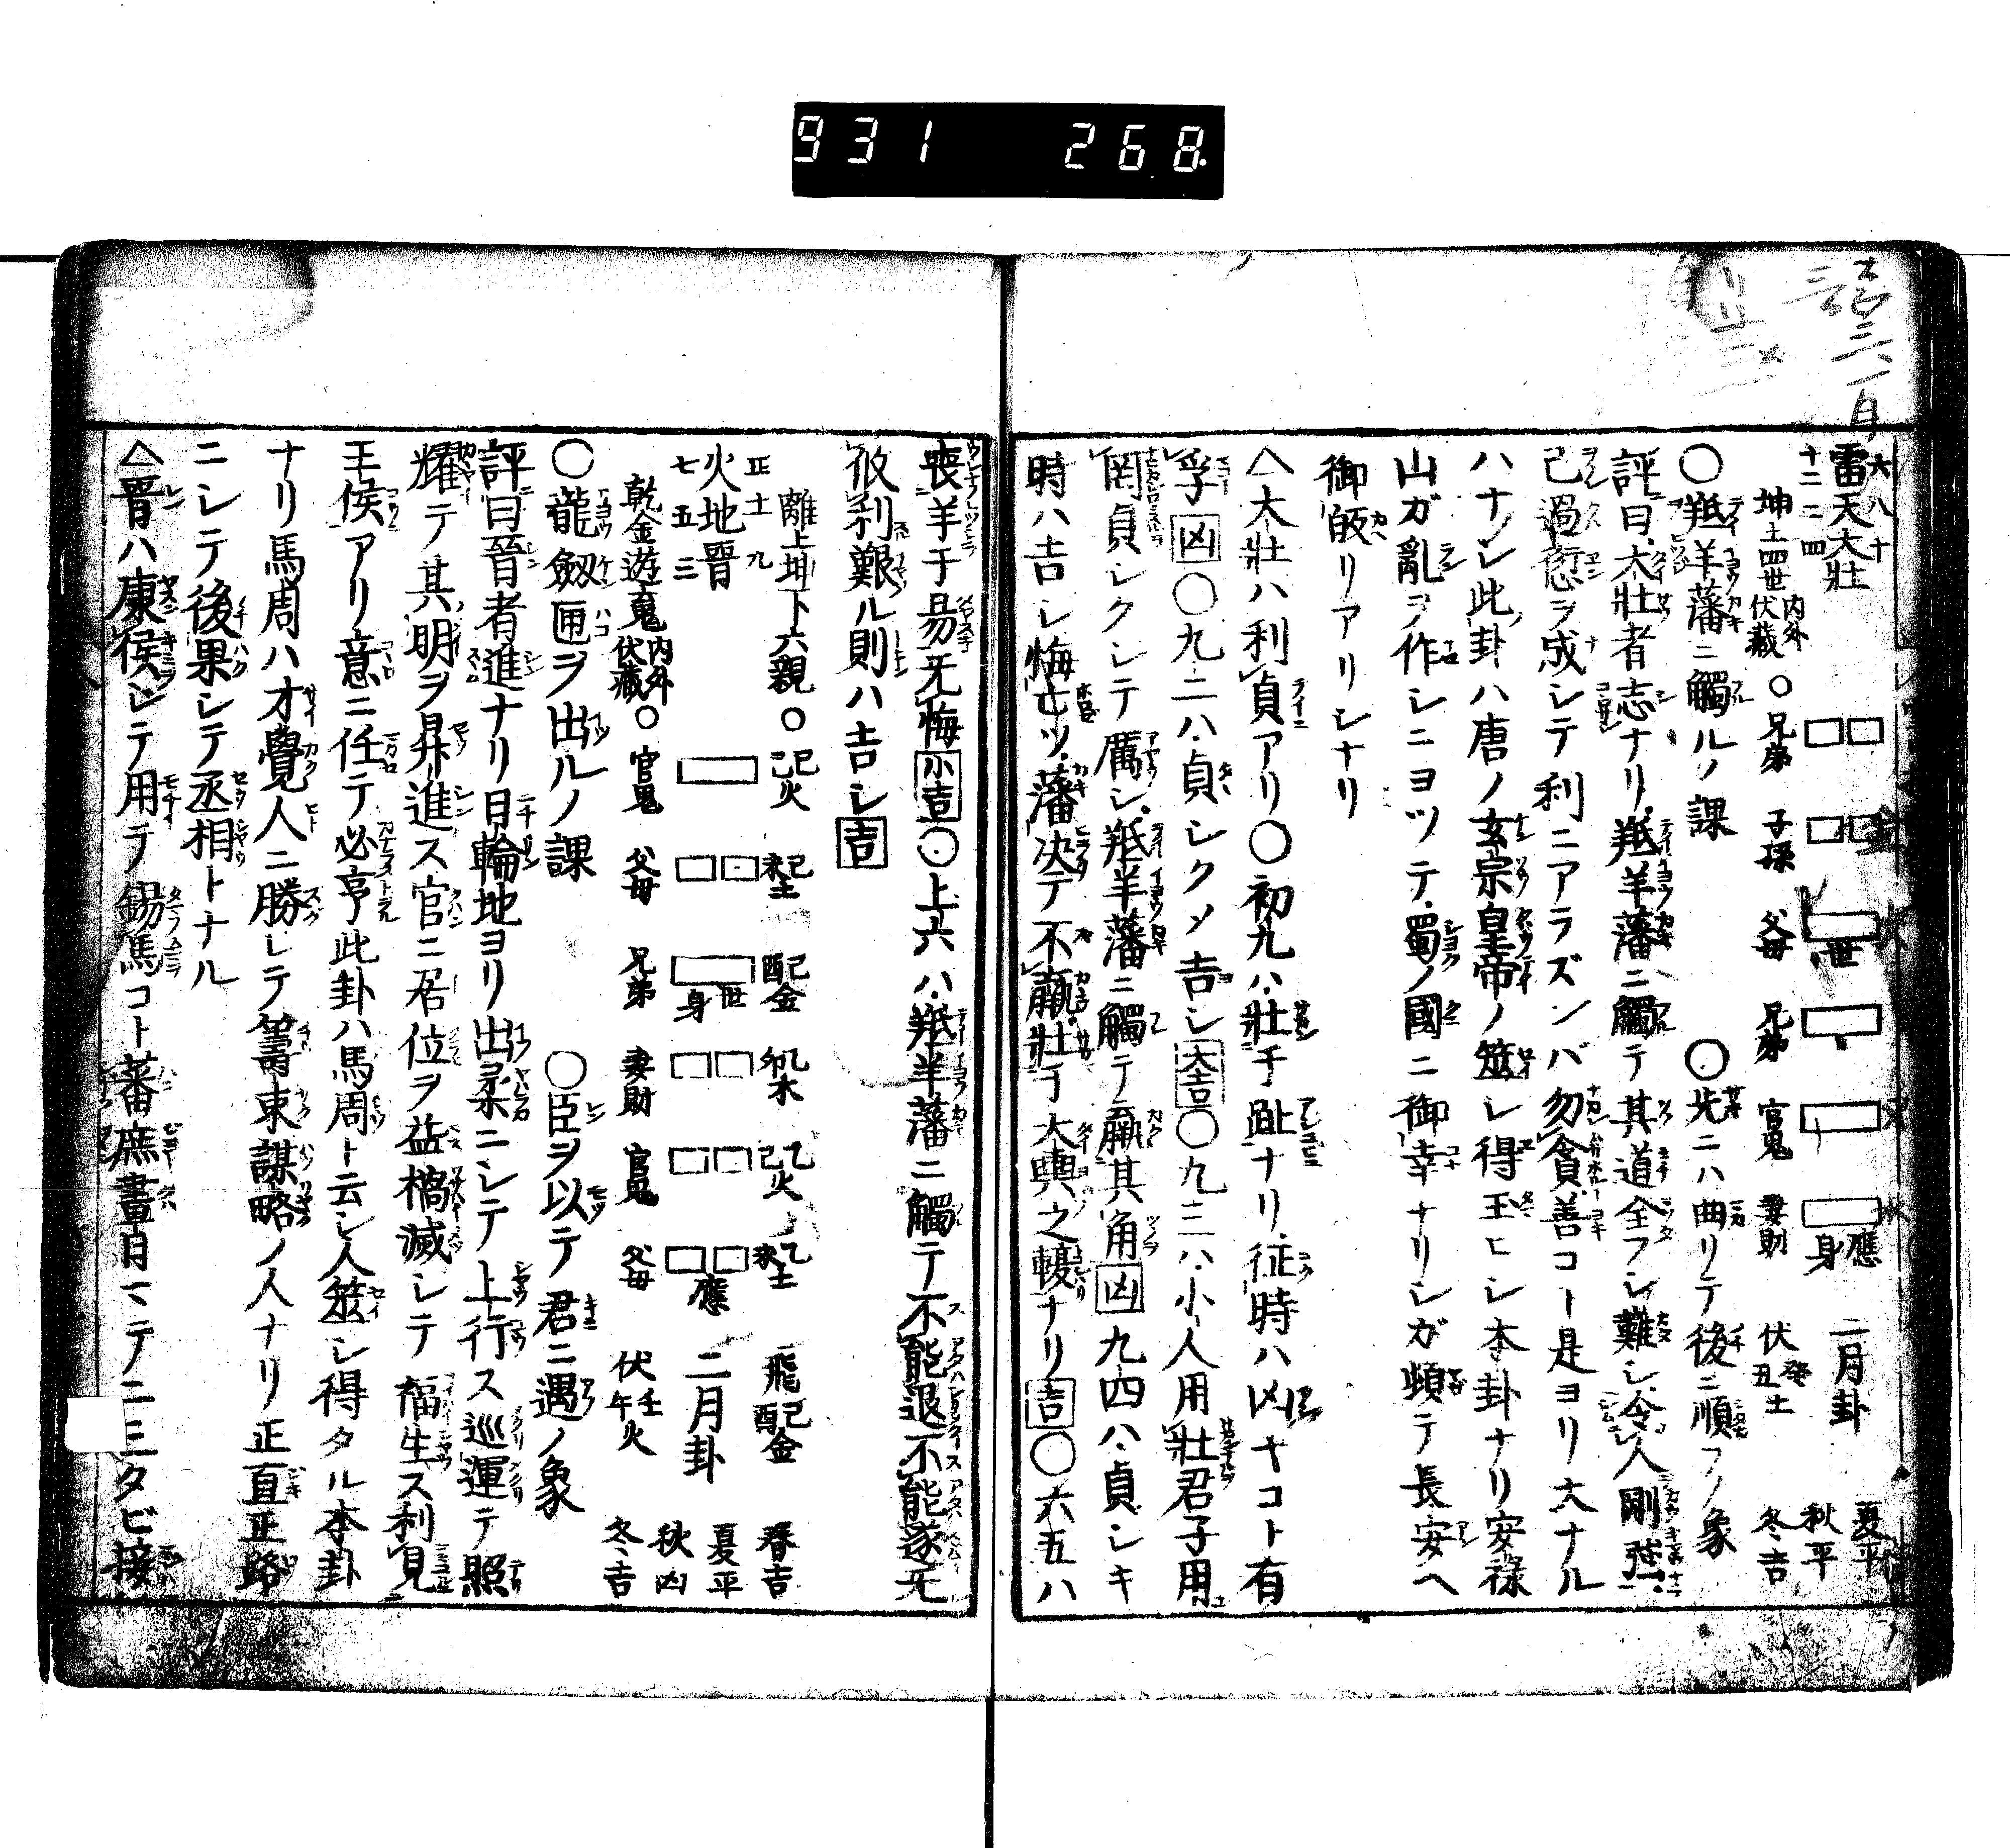 931 268.
六八十
雷天大壯
十二二四
二月卦
夏平
秋平
冬吉
坤土四世 内外伏藏 ○兄弟 子孫 父母 兄弟 官鬼 妻財 伏癸丑土
世
應
身
○羝羊藩ニ觸ルノ課 ○先ニハ曲リテ後ニ順フノ象
評曰大壯者志ナリ羝羊藩ニ觸テ其道全フシ難シ令人剛強
己過愆ヲ成シテ利ニアラズンバ勿貪善コト是ヨリ大ナル
ハナシ此卦ハ唐ノ玄宗皇帝ノ筮シ得玉ヒシ本卦ナリ安祿
山ガ亂ヲ作シニヨツテ蜀ノ國ニ御幸ナリシガ頻テ長安ヘ
御皈リアリシナリ
△大壯ハ利貞アリ○初九ハ壯于趾ナリ征時ハ凶ヤコト有
孚凶○九二ハ貞シクメ吉シ大吉○九三ハ小人用壯君子用
罔貞シクシテ厲シ羝羊藩ニ觸テ羸其角凶九四ハ貞シキ
時ハ吉シ悔亡ツ藩决テ不羸壯于大輿之輹ナリ吉○六五ハ
喪羊于昜无悔小吉○上六ハ羝羊藩ニ觸テ不能退不能遂无
攸利艱ル則ハ吉シ吉
離上坤下六親○己巳火 己未土 己酉金 乙卯木 乙巳火 乙未土 飛己酉金 春吉
正十一九
火地晋
七五三
世
身
應
二月卦
夏平
秋凶
冬吉
乾金遊鬼 内外伏藏○官鬼 父母 兄弟 妻財 官鬼 父母 伏壬午火
○龍劔匣ヲ出ルノ課 ○臣ヲ以テ君ニ遇ノ象
評曰晉者進ナリ日輪地ヨリ出柔ニシテ上行ス巡運テ照
耀テ其明ヲ昇進ス官ニ居位ヲ益橋滅シテ福生ス利見
王侯アリ意ニ任テ必亨此卦ハ馬周ト云シ人筮シ得タル本卦
ナリ馬周ハ才覺人ニ勝レテ籌束謀略ノ人ナリ正直正路
ニシテ後果シテ丞相トナル
△晋ハ康侯シテ用テ錫馬コト蕃庶晝日ニテノニ三タビ接